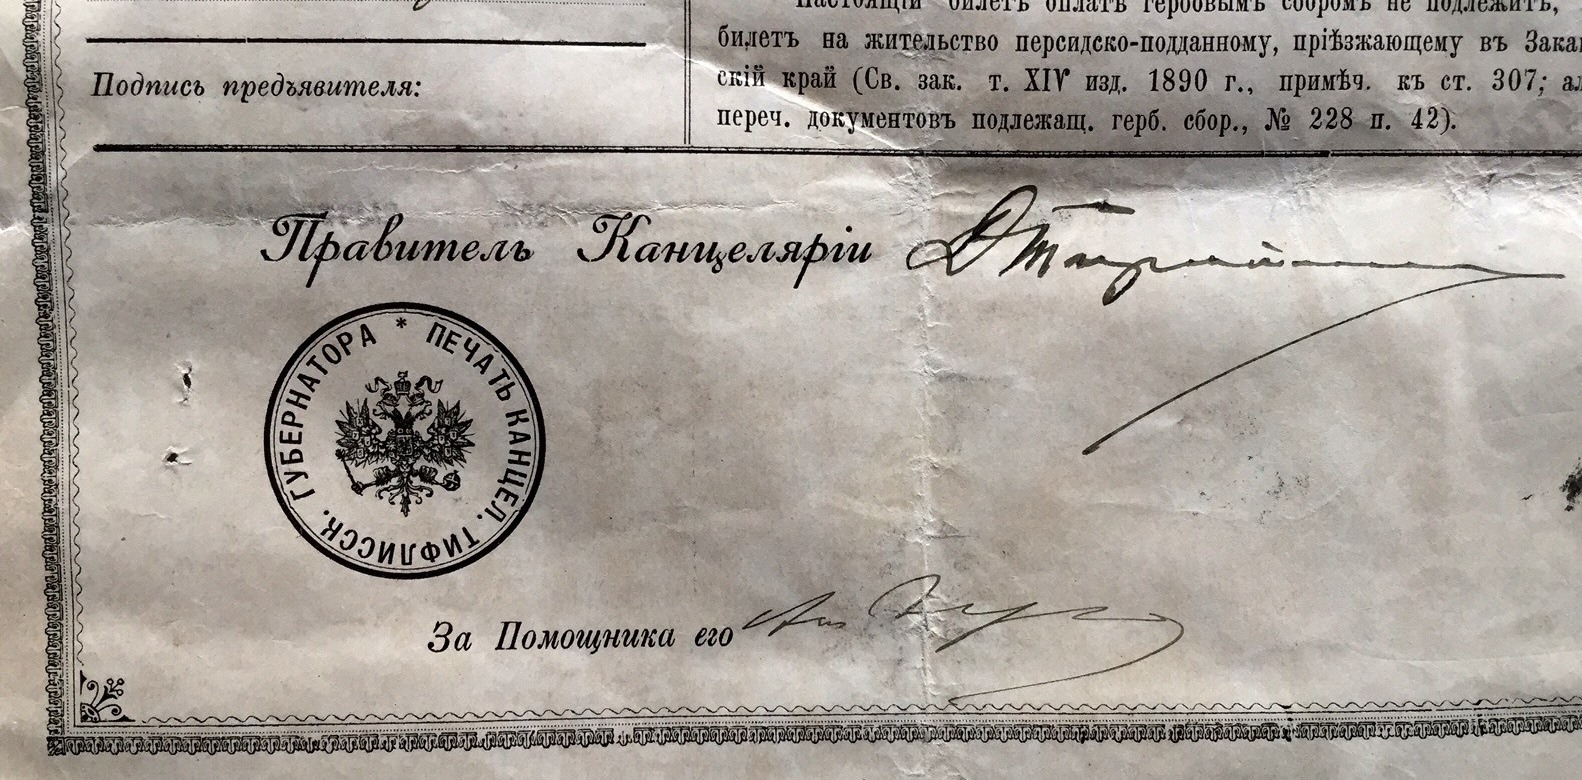 Подпись предъявителя:
Настоящій билетъ оплатѣ гербовымъ сборомъ не подлежитъ,
билетъ на жительство персидско-подданному, пріѣзжающему въ
скій край (Св. зак. т. XIV изд. 1890 г., примѣч. къ ст. 307;
переч. документовъ подлежащ. герб. сбор., № 228 п. 42).
Правитель Канцеляріи
* ПЕЧАТЬ КАНЦЕЛ. ТИФЛИССК. ГУБЕРНАТОРА
За Помощника его